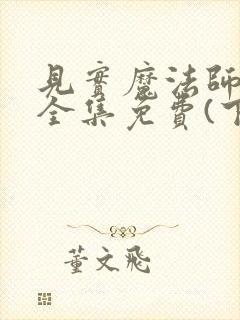 見實魔法師
全集免費(下
董文飛